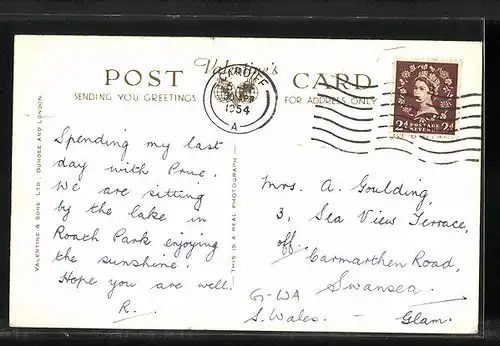 Valentine's
POST CARD
SENDING YOU GREETINGS
FOR ADDRESS ONLY
CARDIFF
30 APR
1954
A
2d POSTAGE REVENUE 2d
VALENTINE & SONS, LTD., DUNDEE AND LONDON.
THIS IS A REAL PHOTOGRAPH
Spending my last
day with Prue.
We are sitting
by the lake in
Roath Park enjoying
the sunshine.
Hope you are well!
R.
Mrs. A. Goulding,
3, Sea View Terrace,
off Carmarthen Road,
Swansea
S. Wales. Glam.